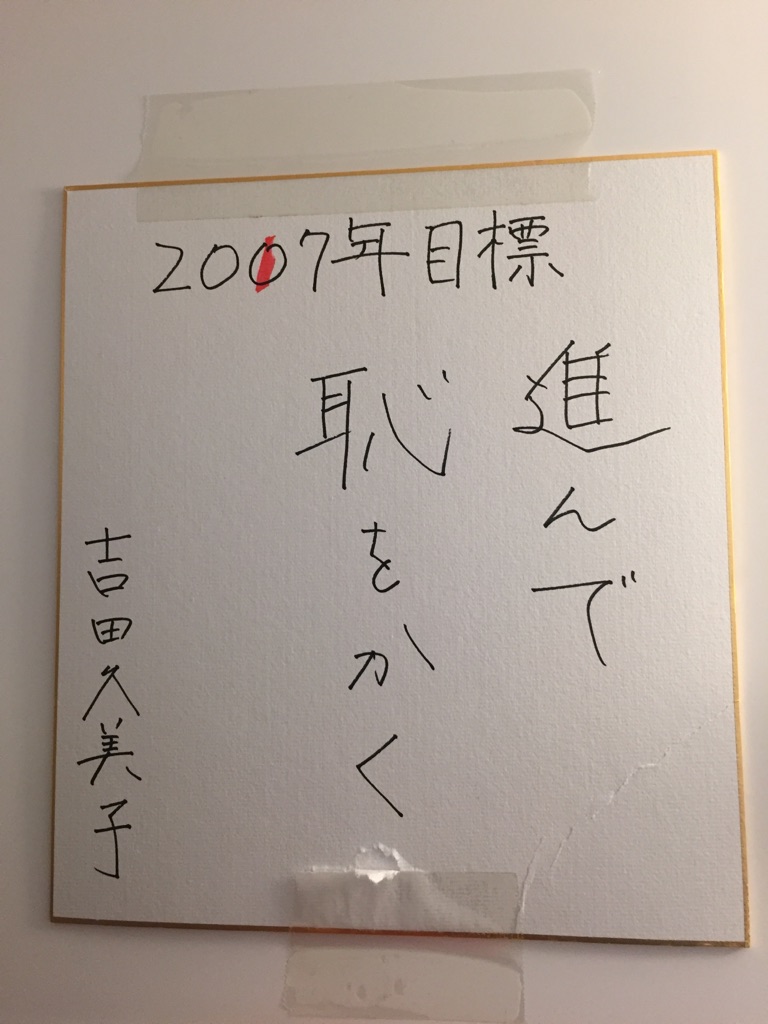 2007年目標
進んで
恥をかく
吉田久美子